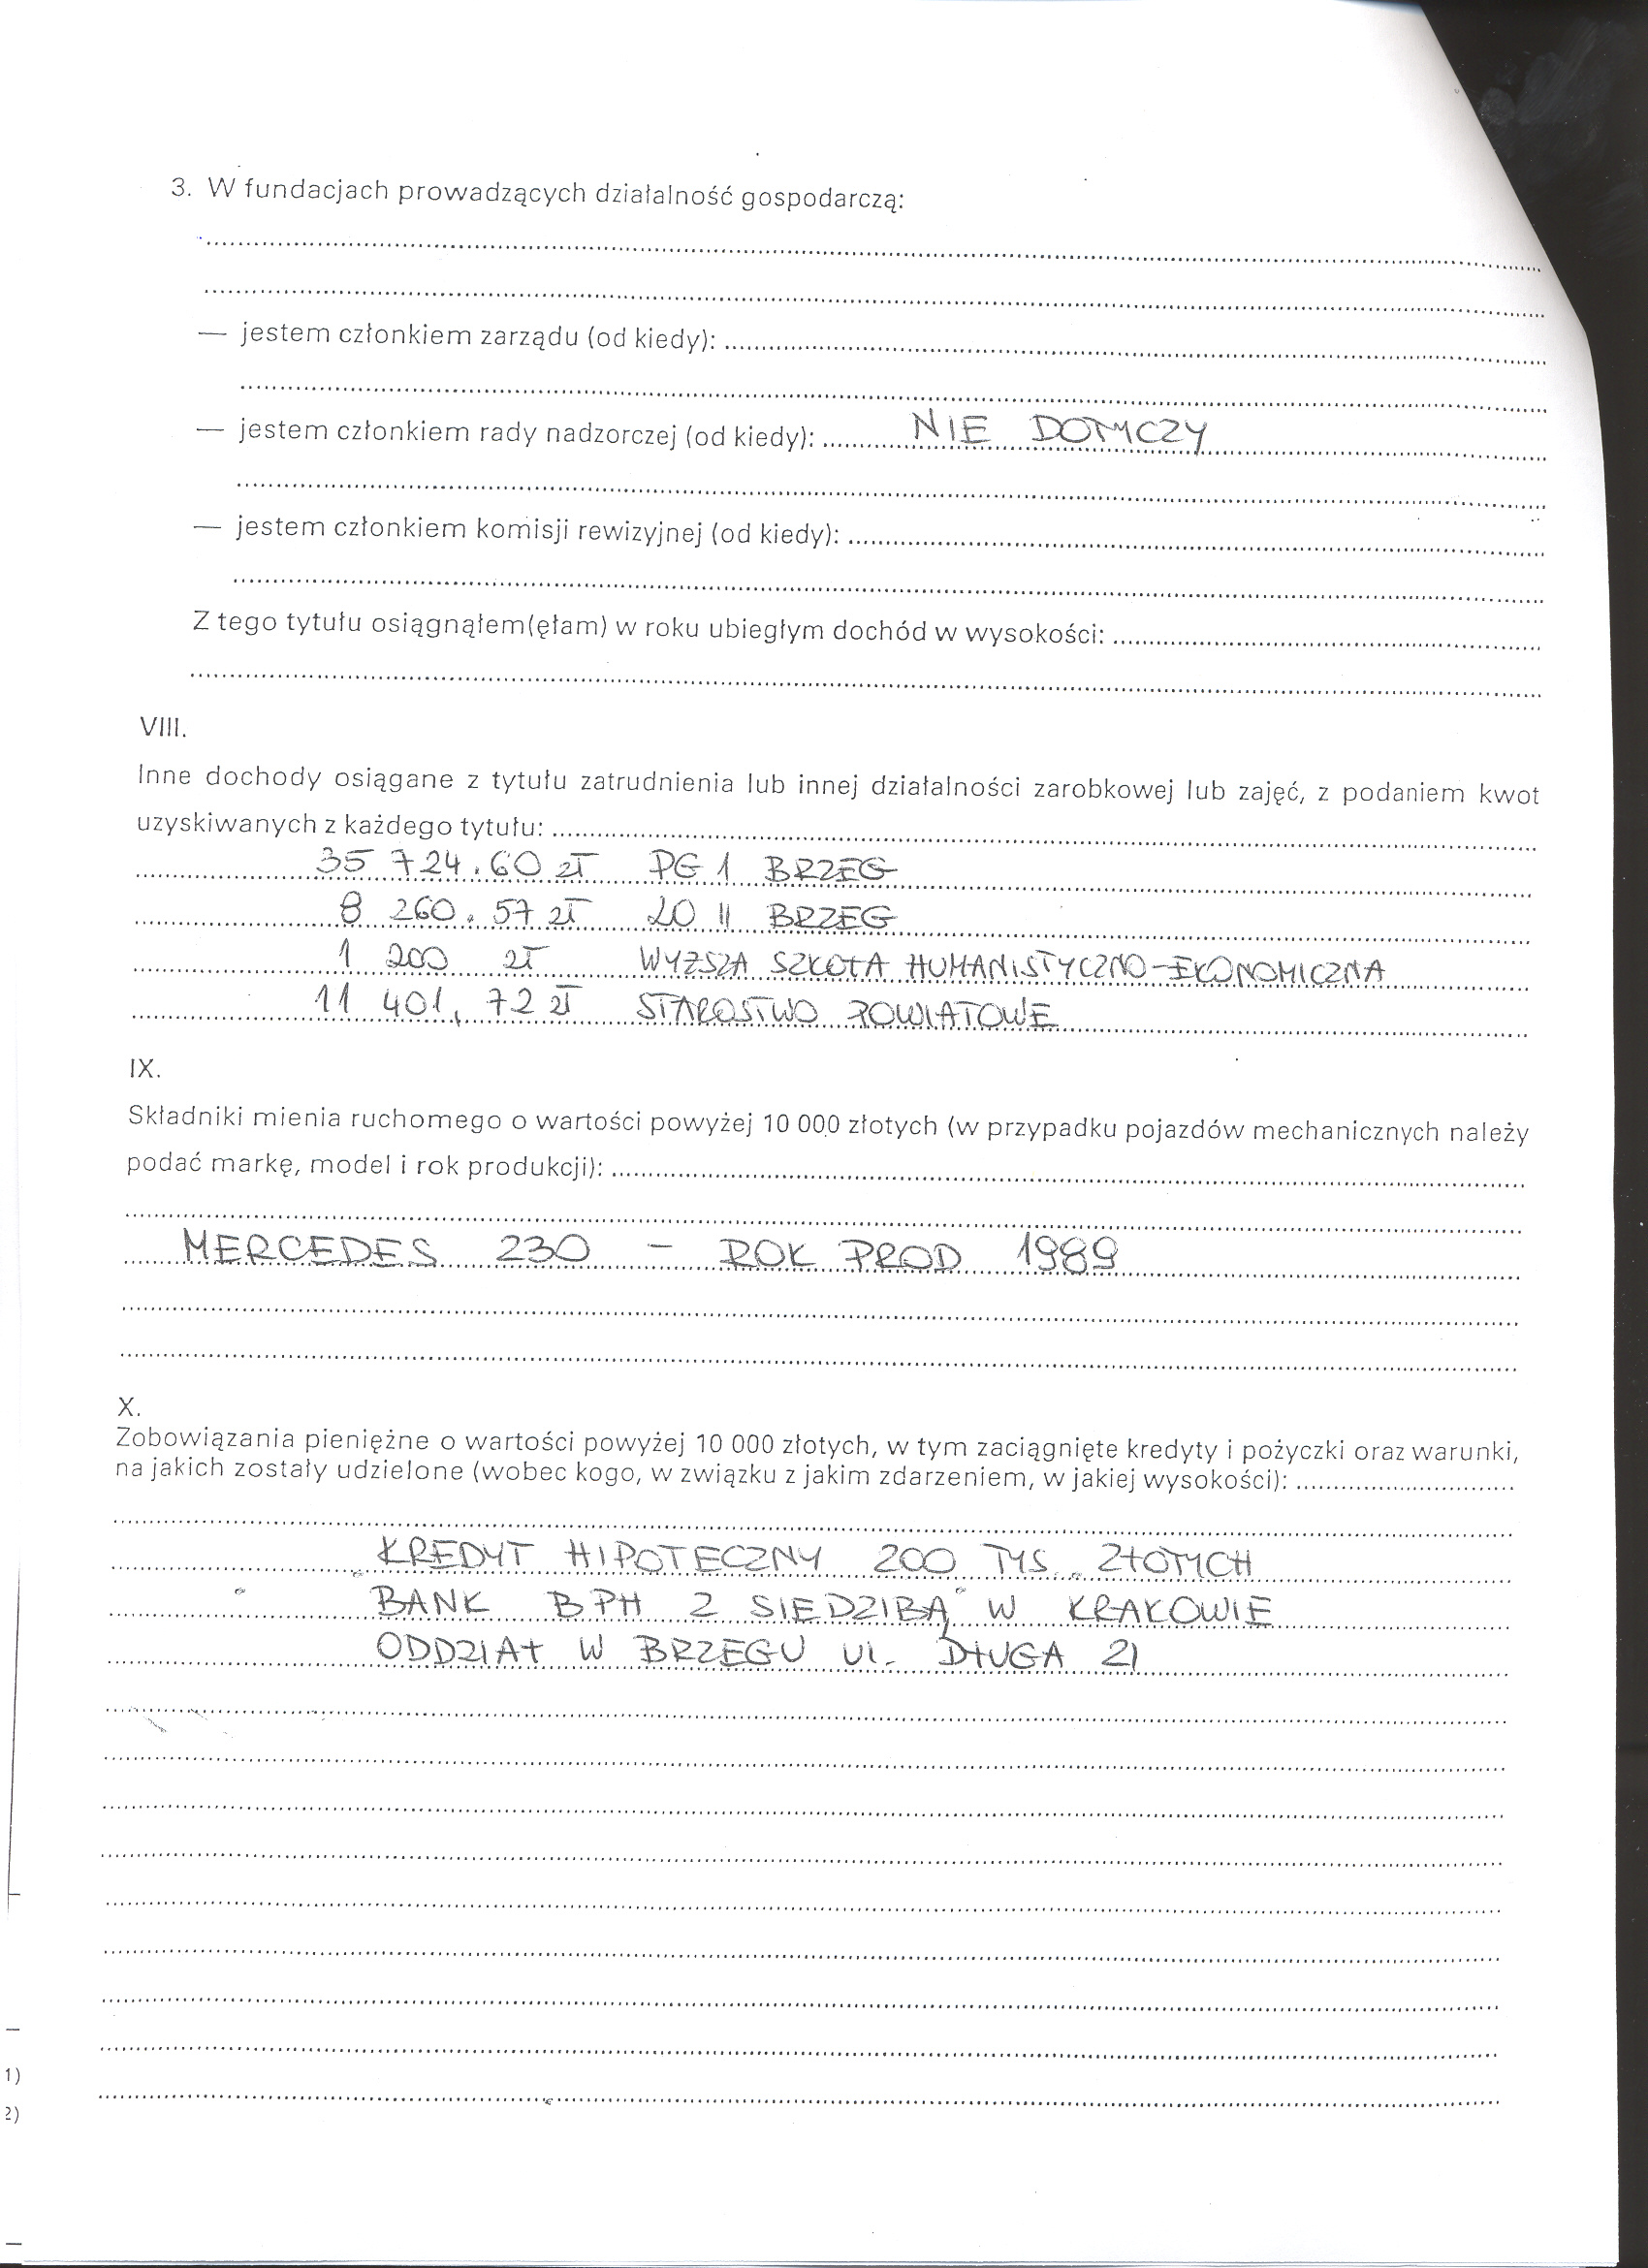 3. W fundacjach prowadzących działalność gospodarczą:
— jestem członkiem zarządu (od kiedy):
— jestem członkiem rady nadzorczej (od kiedy): NIE DOTYCZY
— jestem członkiem komisji rewizyjnej (od kiedy):
Z tego tytułu osiągnąłem(ęłam) w roku ubiegłym dochód w wysokości:
VIII.
Inne dochody osiągane z tytułu zatrudnienia lub innej działalności zarobkowej lub zajęć, z podaniem kwot
uzyskiwanych z każdego tytułu:
35 724.60 zł PG 1 BRZEG
8 260.57 zł LO II BRZEG
1 200 zł WYŻSZA SZKOŁA HUMANISTYCZNO-EKONOMICZNA
11 401,72 zł STAROSTWO POWIATOWE
IX.
Składniki mienia ruchomego o wartości powyżej 10 000 złotych (w przypadku pojazdów mechanicznych należy
podać markę, model i rok produkcji):
MERCEDES 230 – ROK PROD 1989
X.
Zobowiązania pieniężne o wartości powyżej 10 000 złotych, w tym zaciągnięte kredyty i pożyczki oraz warunki,
na jakich zostały udzielone (wobec kogo, w związku z jakim zdarzeniem, w jakiej wysokości):
KREDYT HIPOTECZNY 200 TYS. ZŁOTYCH
BANK BPH Z SIEDZIBĄ W KRAKOWIE
ODDZIAŁ W BRZEGU UL. DŁUGA 21
1)
2)